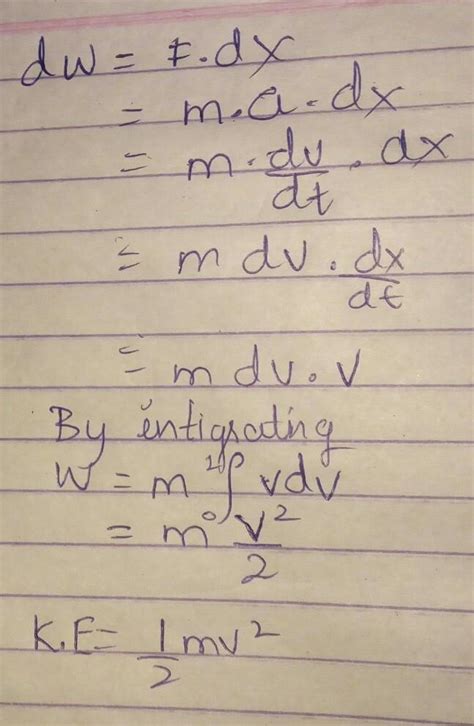 dw = F.dx
= m.a.dx
= m.dv/dt.dx
= m dv.dx/dt
= m dv.v
By entigrating
W = m ∫₀ᵛ vdv
= m v²/2
K.E = 1/2 mv²